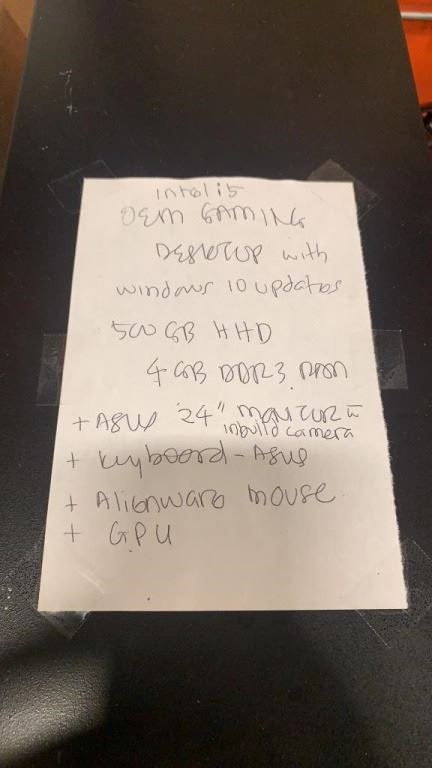 intel i5
OEM GAMING
DESKTOP with
windows 10 updates
500 GB HHD
4 GB DDR3 RAM
+ ASUS 24" MONITOR w
inbuild camera
+ keyboord - ASUS
+ Alienware mouse
+ GPU